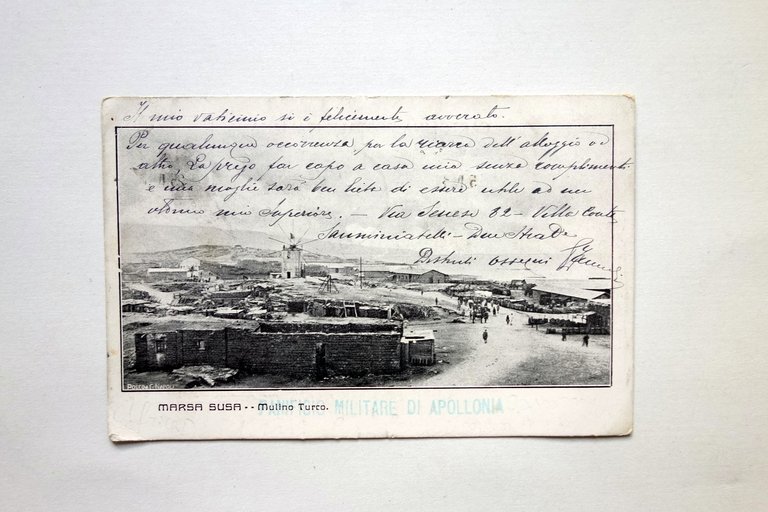 Il mio vaticinio si è felicemente avverato.
Per qualunque occorrenza per la ricerca dell'alloggio od
altro, La prego far capo a casa mia senza complimenti
e mia moglie sarà ben lieta di essere utile ad un
ottimo mio Superiore. — Via Senese 82 - Villa Conte
Sanminiatelli - Due Strade
Distinti ossequi
Pocoas C. Napoli
MARSA SUSA -- Mulino Turco.
PANIFICIO MILITARE DI APOLLONIA